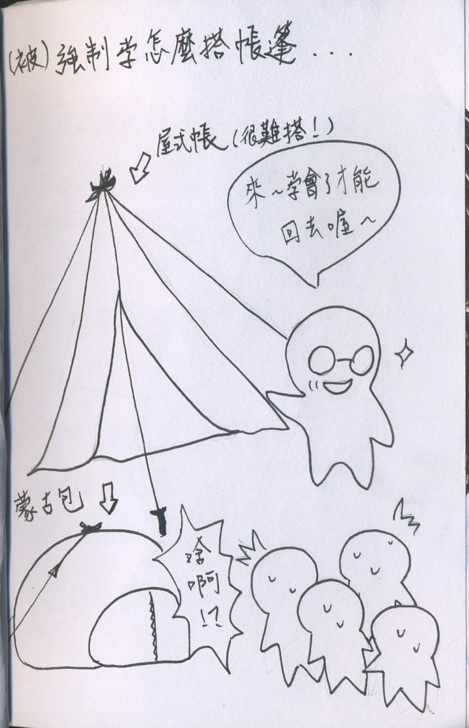 (被)強制学怎麼搭帳篷...
屋式帳(很難搭!)
來~学會了才能
回去喔~
蒙古包
啥
啊
!?